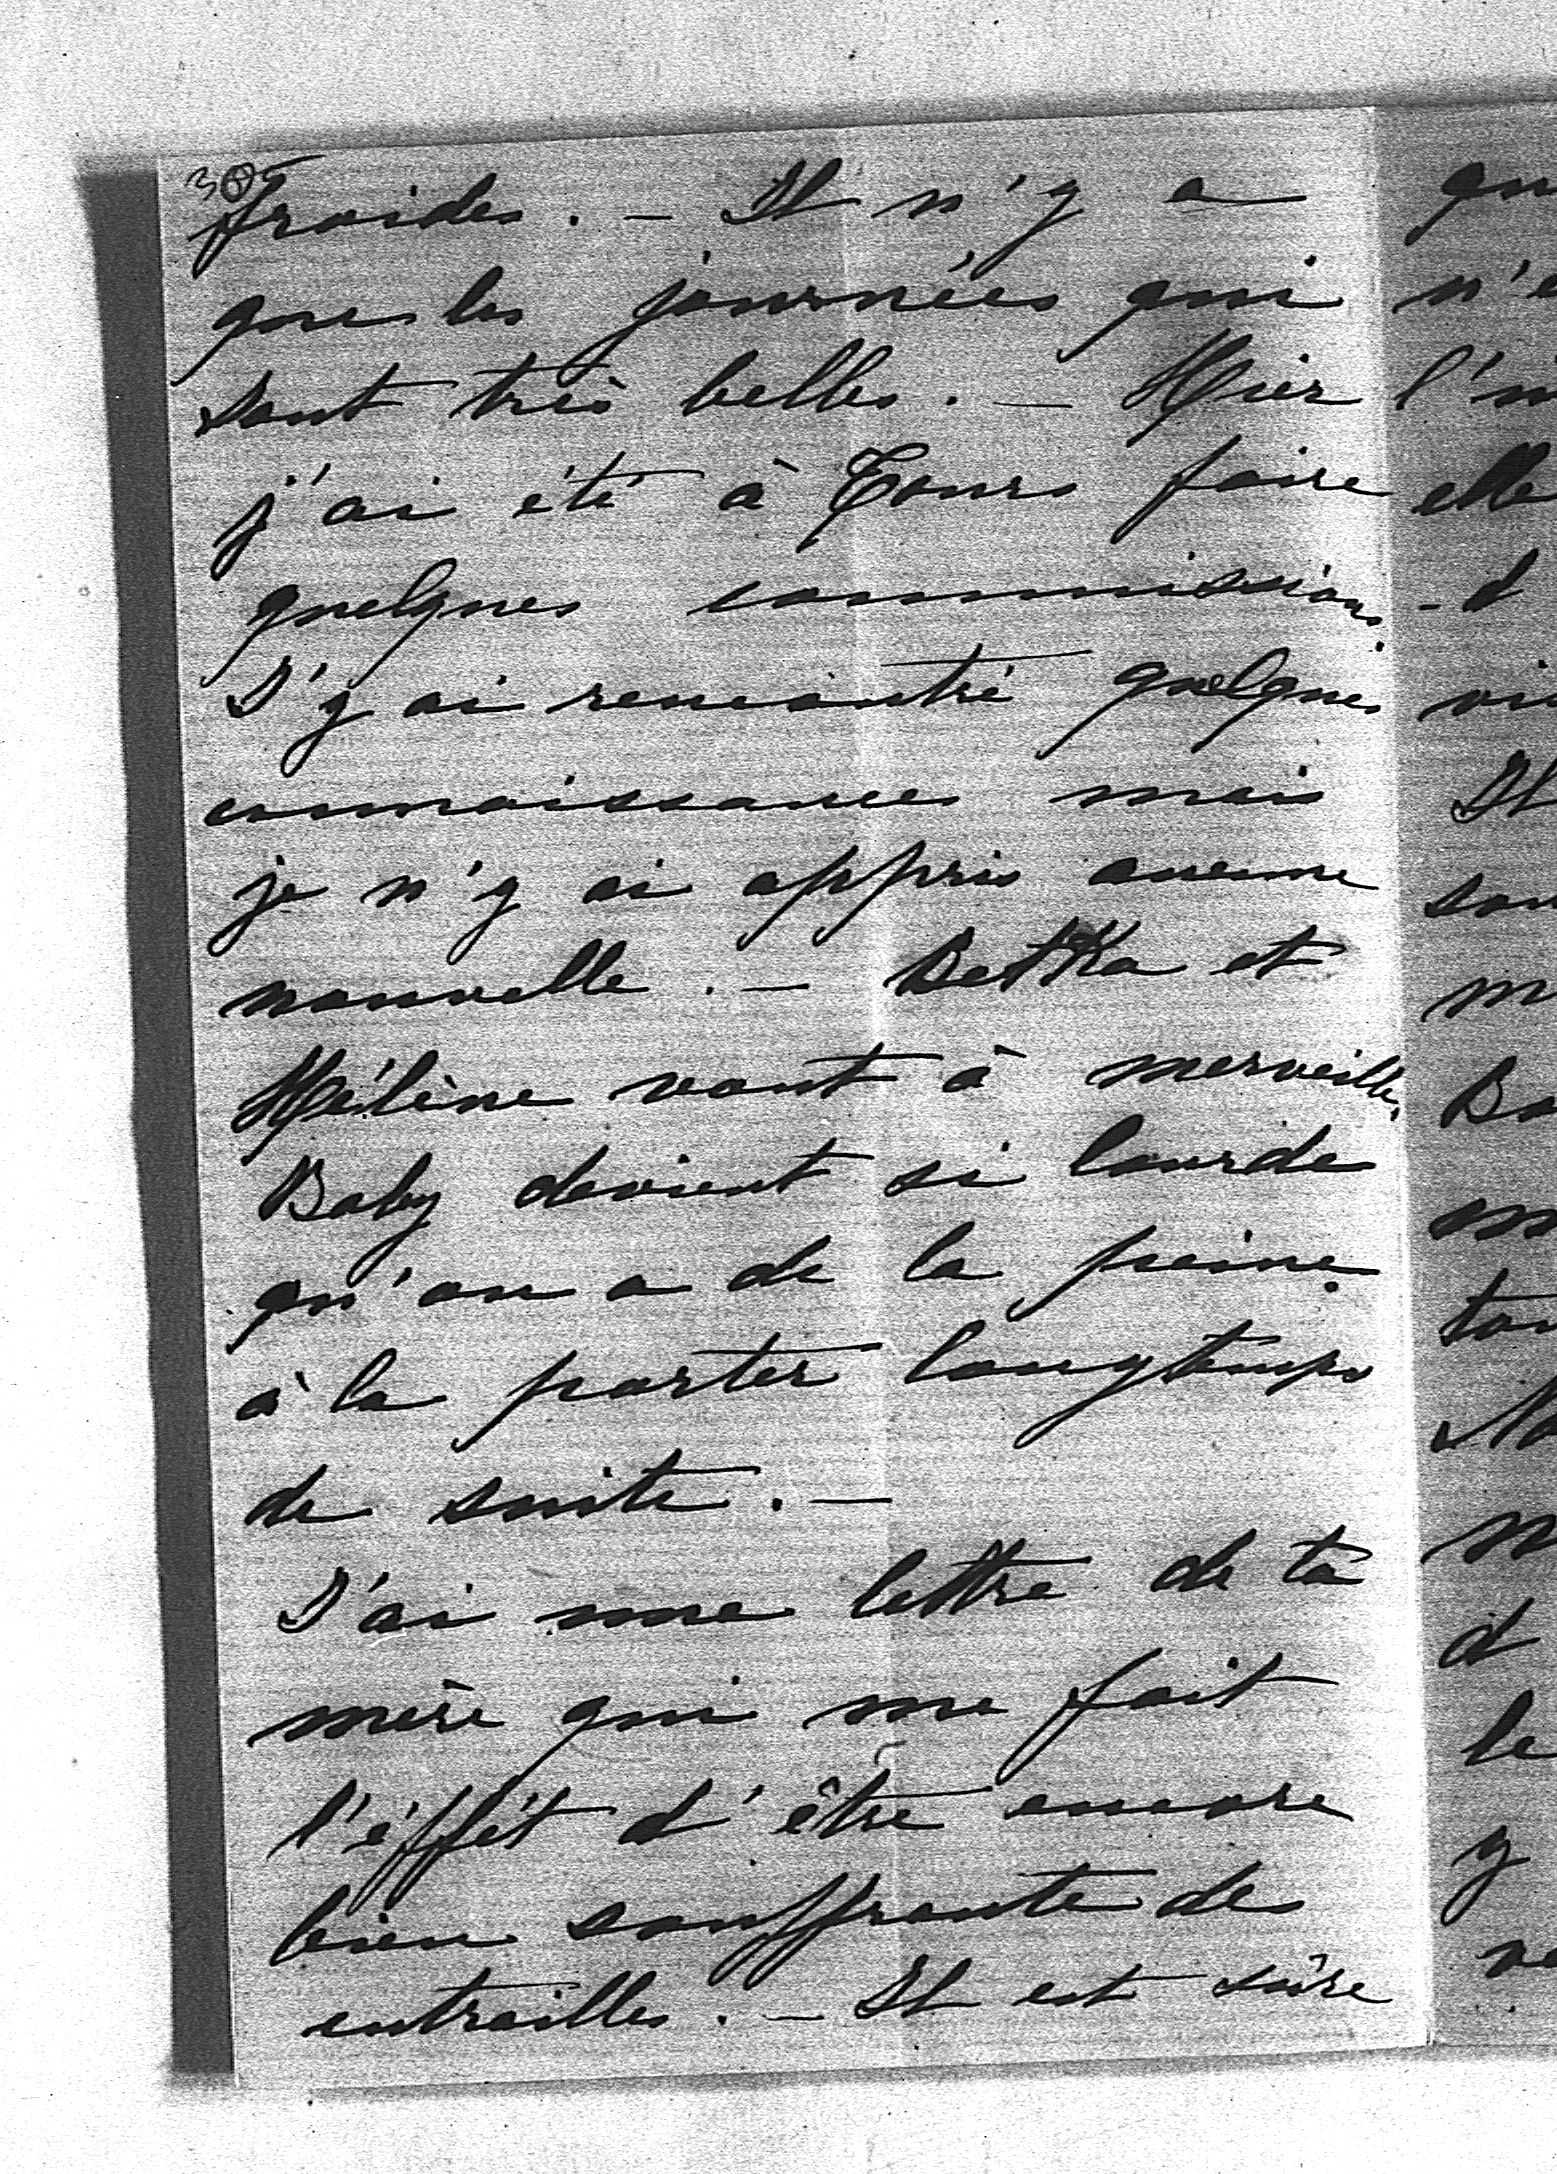 froides. — Il n'y a
que les journées qui
sont très belles. — Hier
j'ai été à Tours faire
quelques commissions.
J'y ai rencontré quelques
connaissances mais
je n'y ai appris aucune
nouvelle. — Betka et
Hélène vont à merveille.
Baby devient si lourde
qu'on a de la peine
à la porter longtemps
de suite. —
J'ai une lettre de ta
mère qui me fait
l'éffét d'être encore
bien souffrante des
entrailles. — Il est sûre